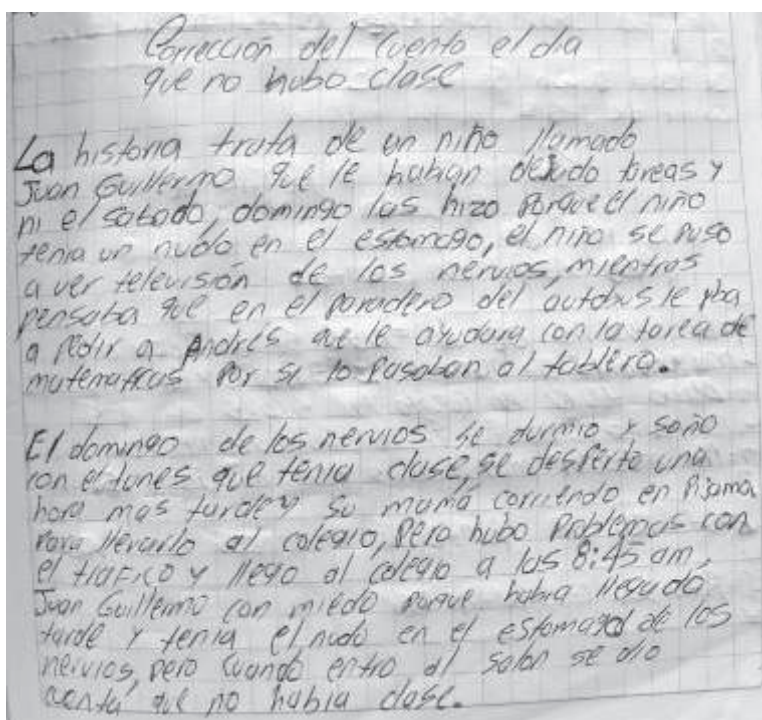 Corrección del cuento el dia
que no hubo clase
La historia trata de un niño llamado
Juan Guillermo que le habian dejado tareas y
ni el sabado, domingo las hizo porque el niño
tenia un nudo en el estomago, el niño se puso
a ver televisión de los nervios, mientras
pensaba que en el paradero del autobus le iba
a pedir a Andrés que le ayudara con la tarea de
matematicas por si lo pasaban al tablero.
El domingo de los nervios se durmio y soño
con el lunes que tenia clase, se desperto una
hora mas tarde y su mamá corriendo en pijama
para llevarlo al colegio, pero hubo problemas con
el trafico y llego al colegio a las 8:45 am,
Juan Guillermo con miedo porque habia llegado
tarde y tenia el nudo en el estomago de los
nervios, pero cuando entro al salon se dio
cuenta que no habia clase.